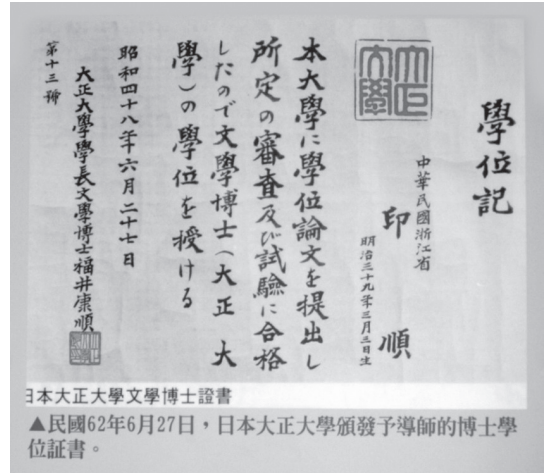 學位記
大正大學
中華民國浙江省
印順
明治三十九年三月三日生
本大學に學位論文を提出し
所定の審査及び試驗に合格
したので文學博士(大正大
學)の學位を授ける
昭和四十八年六月二十七日
大正大學學長文學博士福井康順
第十三號
日本大正大學文學博士證書
▲民國62年6月27日,日本大正大學頒發予導師的博士學
位証書。